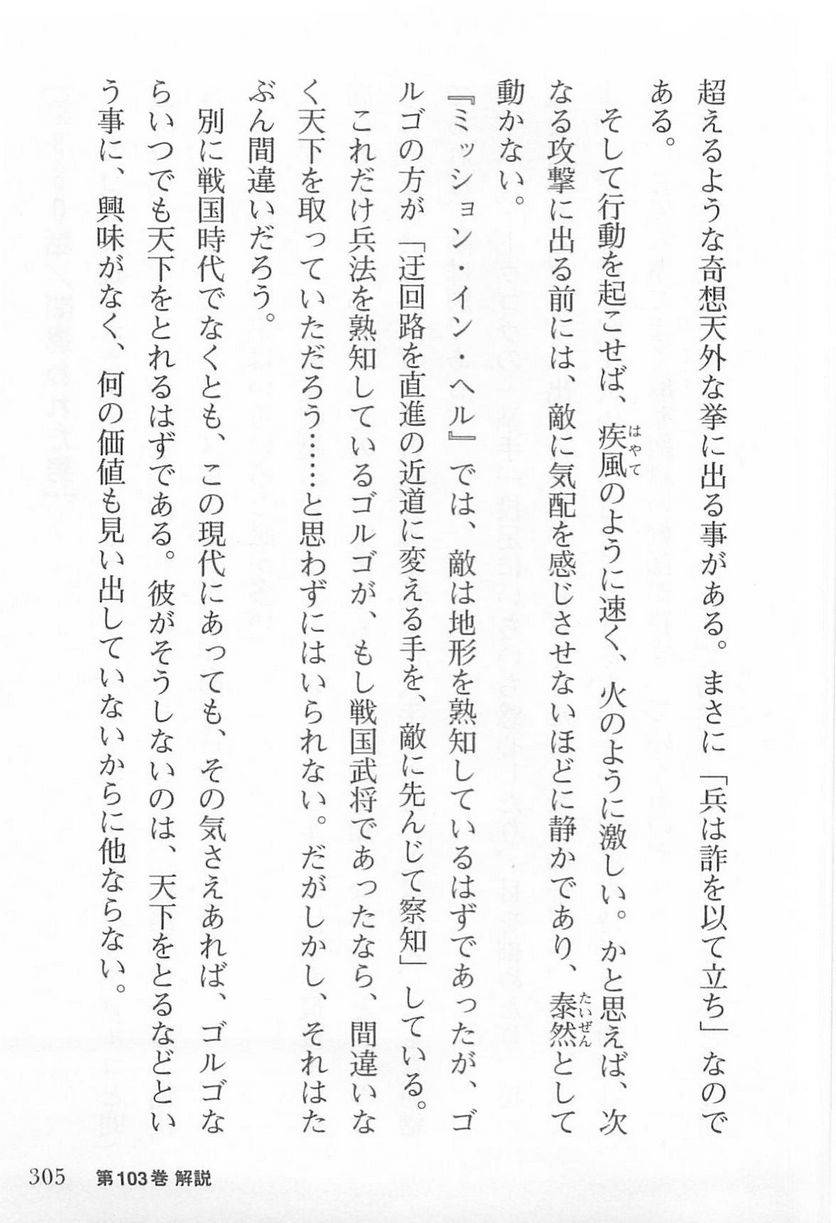 超えるような奇想天外な挙に出る事がある。まさに「兵は詐を以て立ち」なので
ある。
　そして行動を起こせば、疾風のように速く、火のように激しい。かと思えば、次
なる攻撃に出る前には、敵に気配を感じさせないほどに静かであり、泰然として
動かない。
『ミッション・イン・ヘル』では、敵は地形を熟知しているはずであったが、ゴ
ルゴの方が「迂回路を直進の近道に変える手を、敵に先んじて察知」している。
　これだけ兵法を熟知しているゴルゴが、もし戦国武将であったなら、間違いな
く天下を取っていただろう……と思わずにはいられない。だがしかし、それはた
ぶん間違いだろう。
　別に戦国時代でなくとも、この現代にあっても、その気さえあれば、ゴルゴな
らいつでも天下をとれるはずである。彼がそうしないのは、天下をとるなどとい
う事に、興味がなく、何の価値も見い出していないからに他ならない。
はやて
たいぜん
305 第103巻 解説